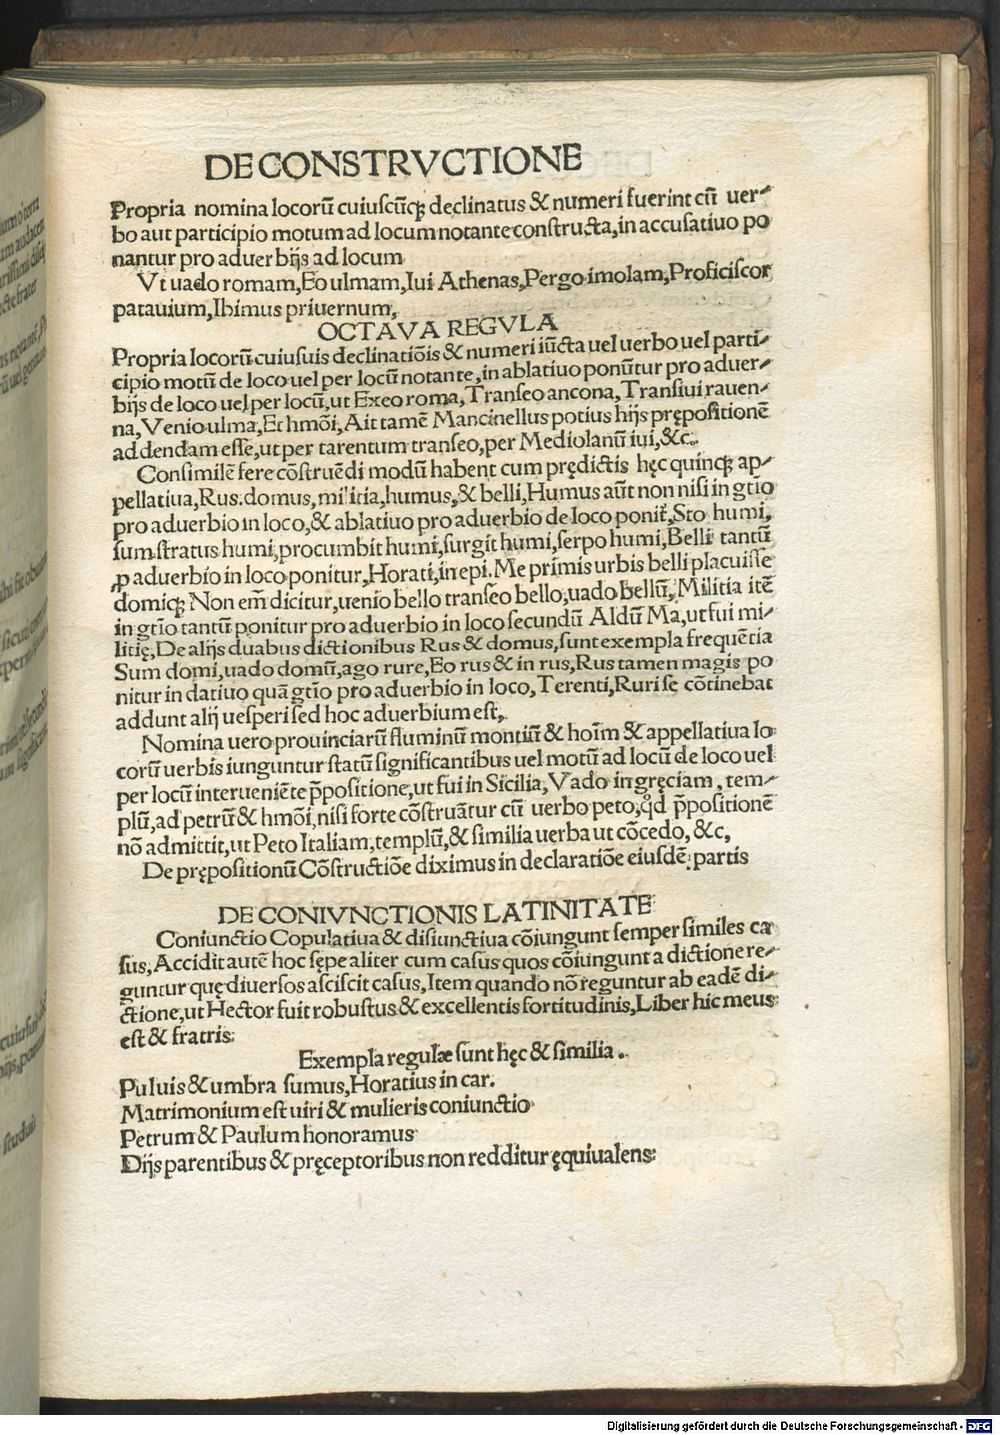 DE CONSTRVCTIONE
Propria nomina locorū cuiuscūqꝫ declinatus & numeri fuerint cū uer⸗
bo aut participio motum ad locum notante constructa, in accusatiuo po
nantur pro aduerbijs ad locum
Vt uado romam, Eo ulmam, Iui Athenas, Pergo imolam, Proficiscor
patauium, Ibimus priuernum,
OCTAVA REGVLA
Propria locorū cuiusuis declinatiōis & numeri iūcta uel uerbo uel parti⸗
cipio motū de loco uel per locū notante, in ablatiuo ponūtur pro aduer⸗
bijs de loco uel per locū, ut Exeo roma, Transeo ancona, Transiui rauen⸗
na, Venio ulma, Et hmōi, Ait tamē Mancinellus potius hijs prępositionē
addendam esse, ut per tarentum transeo, per Mediolanū iui, &c.
Consimilē fere cōstruēdi modū habent cum prędictis hęc quinqꝫ ap⸗
pellatiua, Rus. domus, militia, humus, & belli, Humus aūt non nisi in gtīo
pro aduerbio in loco, & ablatiuo pro aduerbio de loco ponit᷑, Sto humi,
sum stratus humi, procumbit humi, surgit humi, serpo humi, Belli tantū
ꝓ aduerbio in loco ponitur, Horati, in epi. Me primis urbis belli placuisse
domiqꝫ Non em̄ dicitur, uenio bello transeo bello, uado bellū, Militia itē
in gtīo tantū ponitur pro aduerbio in loco secundū Aldū Ma, ut fui mi⸗
litię, De alijs duabus dictionibus Rus & domus, sunt exempla frequētia
Sum domi, uado domū, ago rure, Eo rus & in rus, Rus tamen magis po
nitur in datiuo quā gtīo pro aduerbio in loco, Terenti, Ruri se cōtinebat
addunt alij uesperi sed hoc aduerbium est,
Nomina uero prouinciarū fluminū montiū & hoīm & appellatiua lo⸗
corū uerbis iunguntur statū significantibus uel motū ad locū de loco uel
per locū interueniēte p̄positione, ut fui in Sicilia, Vado in gręciam, tem⸗
plū, ad petrū & hmōi, nisi forte cōstruātur cū uerbo peto, qd̄ p̄positionē
nō admittit, ut Peto Italiam, templū, & similia uerba ut cōcedo, &c,
De prępositionū Cōstructiōe diximus in declaratiōe eiusdē partis
DE CONIVNCTIONIS LATINITATE
Coniunctio Copulatiua & disiunctiua cōiungunt semper similes ca
sus, Accidit autē hoc sępe aliter cum casus quos cōiungunt a dictione re⸗
guntur quę diuersos asciscit casus, Item quando nō reguntur ab eadē di⸗
ctione, ut Hector fuit robustus & excellentis fortitudinis, Liber hic meus
est & fratris:
Exempla regulæ sunt hęc & similia.
Puluis & umbra sumus, Horatius in car.
Matrimonium est uiri & mulieris coniunctio
Petrum & Paulum honoramus
Dijs parentibus & pręceptoribus non redditur ęquiualens:
Digitalisierung gefördert durch die Deutsche Forschungsgemeinschaft - DFG